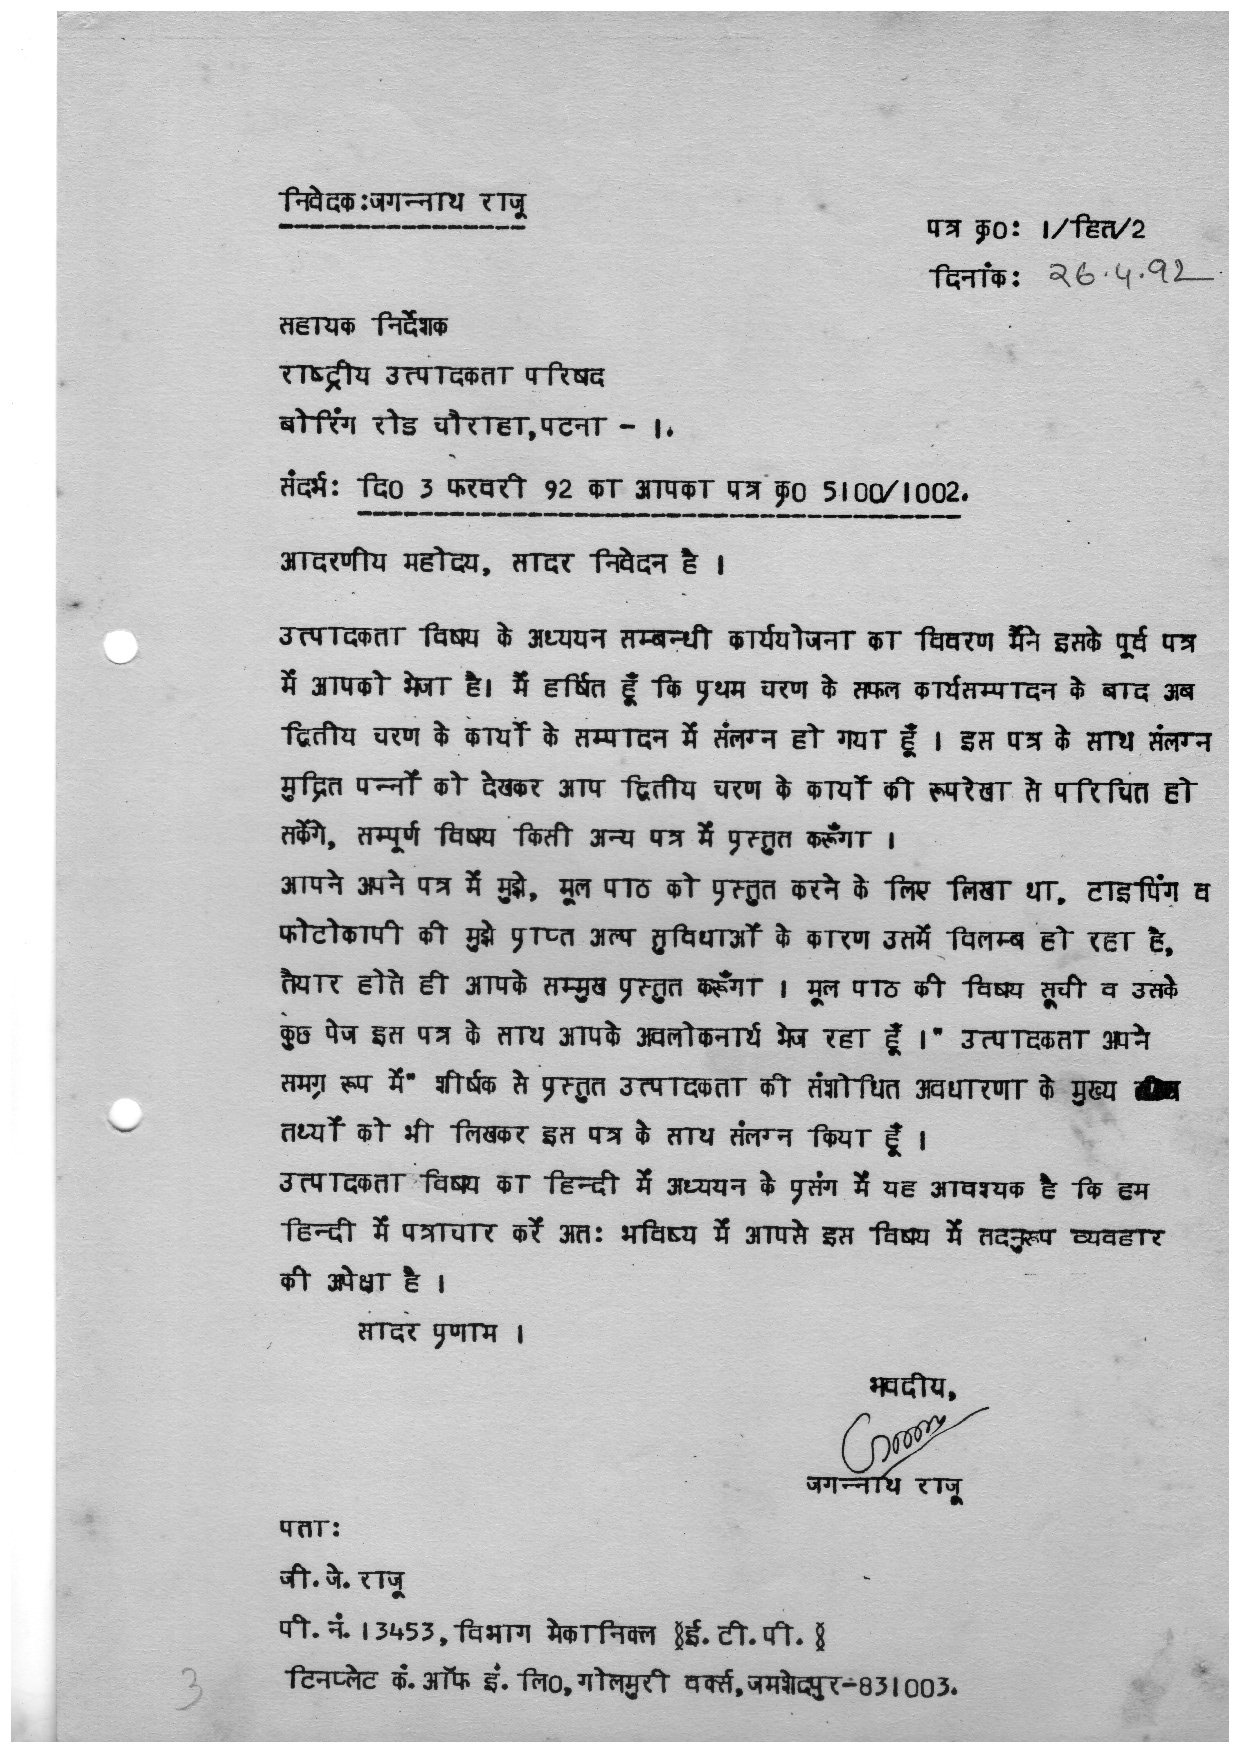 निवेदक:जगन्नाथ राजू
पत्र कृ0: 1/हित/2
दिनांक: 26.4.92
सहायक निर्देशक
राष्ट्रीय उत्पादकता परिषद
बोरिंग रोड चौराहा,पटना - 1.
संदर्भ: दि0 3 फरवरी 92 का आपका पत्र कृ0 5100/1002.
आदरणीय महोदय, सादर निवेदन है ।
उत्पादकता विषय के अध्ययन सम्बन्धी कार्ययोजना का विवरण मैंने इसके पूर्व पत्र
में आपको भेजा है। मैं हर्षित हूँ कि प्रथम चरण के सफल कार्यसम्पादन के बाद अब
द्वितीय चरण के कार्यों के सम्पादन में संलग्न हो गया हूँ । इस पत्र के साथ संलग्न
मुद्रित पन्नों को देखकर आप द्वितीय चरण के कार्यों की रूपरेखा से परिचित हो
सकेंगे, सम्पूर्ण विषय किसी अन्य पत्र में प्रस्तुत करूँगा ।
आपने अपने पत्र में मुझे, मूल पाठ को प्रस्तुत करने के लिए लिखा था. टाइपिंग व
फोटोकापी की मुझे प्राप्त अल्प सुविधाओं के कारण उसमें विलम्ब हो रहा है,
तैयार होते ही आपके सम्मुख प्रस्तुत करूँगा । मूल पाठ की विषय सूची व उसके
कुछ पेज इस पत्र के साथ आपके अवलोकनार्थ भेज रहा हूँ ।" उत्पादकता अपने
समग्र रूप में" शीर्षक से प्रस्तुत उत्पादकता की संशोधित अवधारणा के मुख्य
तथ्यों को भी लिखकर इस पत्र के साथ संलग्न किया हूँ ।
उत्पादकता विषय का हिन्दी में अध्ययन के प्रसंग में यह आवश्यक है कि हम
हिन्दी में पत्राचार करें अत: भविष्य में आपसे इस विषय में तदनुरूप व्यवहार
की अपेक्षा है ।
सादर प्रणाम ।
भवदीय,
जगन्नाथ राजू
पता:
जी.जे.राजू
पी.नं.13453,विभाग मेकानिक्ल (ई.टी.पी.)
टिनप्लेट कं.ऑफ इं.लि0,गोलमुरी वर्क्स,जमशेदपुर-831003.
3